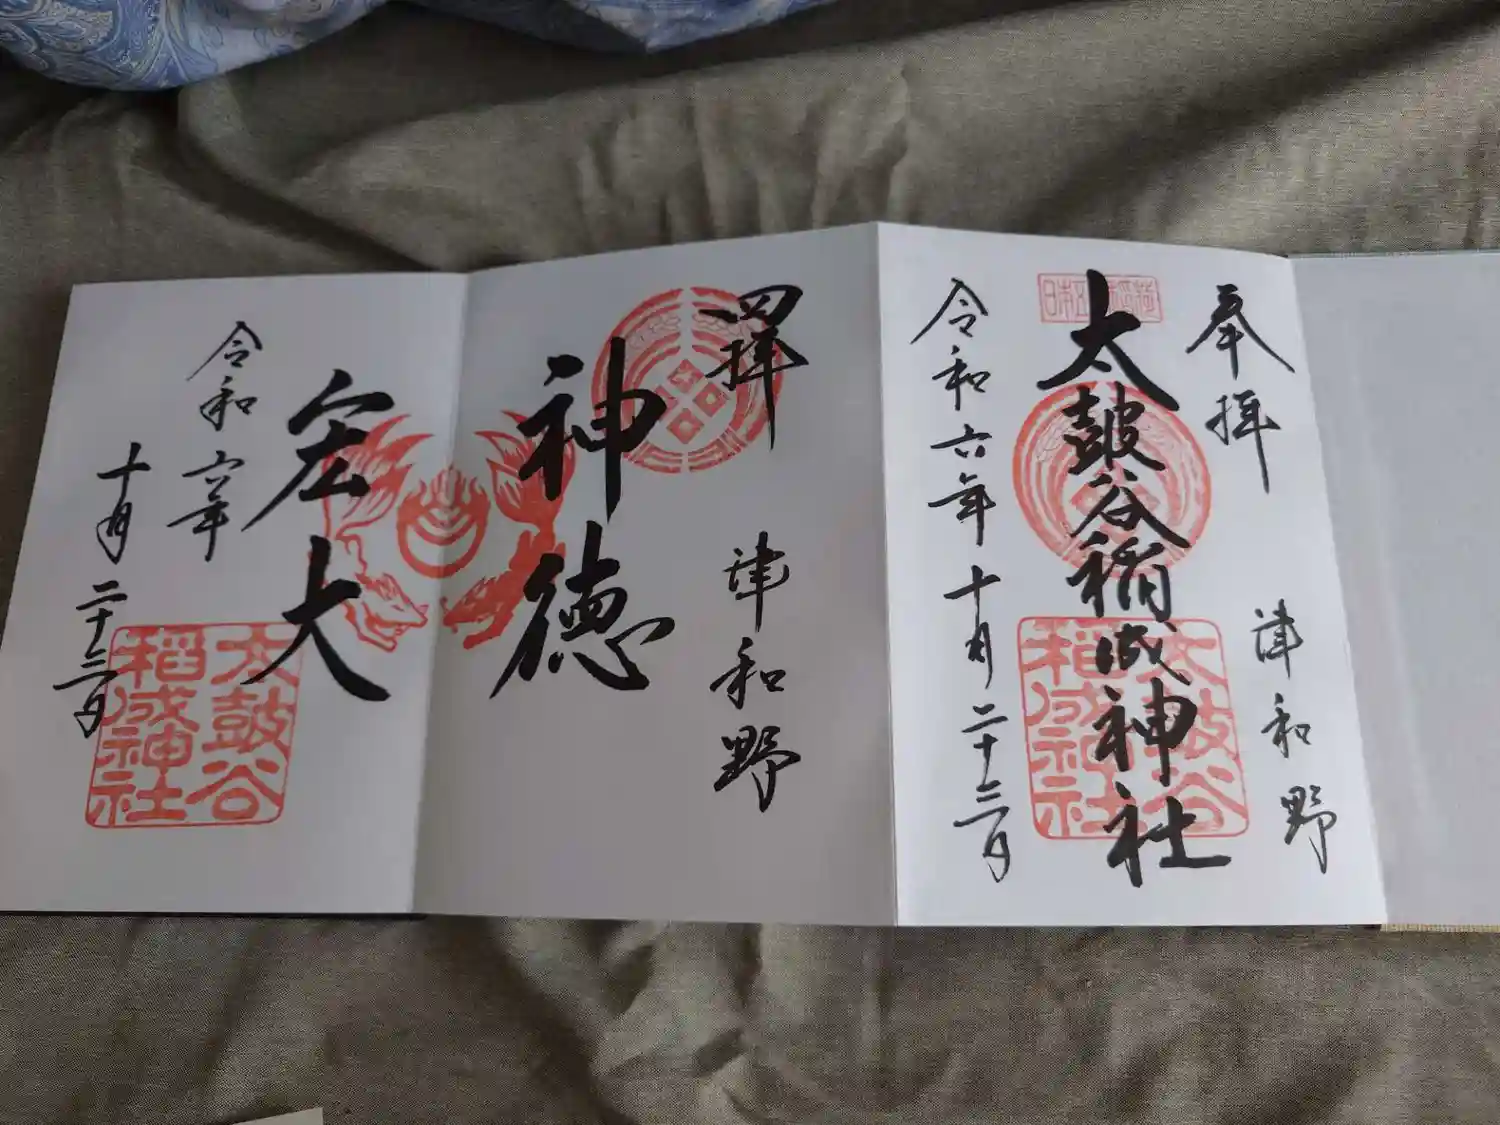 奉拝
津和野
日本五大稲荷
太皷谷稲成神社
太皷谷
稲成神社
令和六年十月二十三日
拝
津和野
神徳
宏大
令和六年
十月二十三日
太皷谷
稲成神社